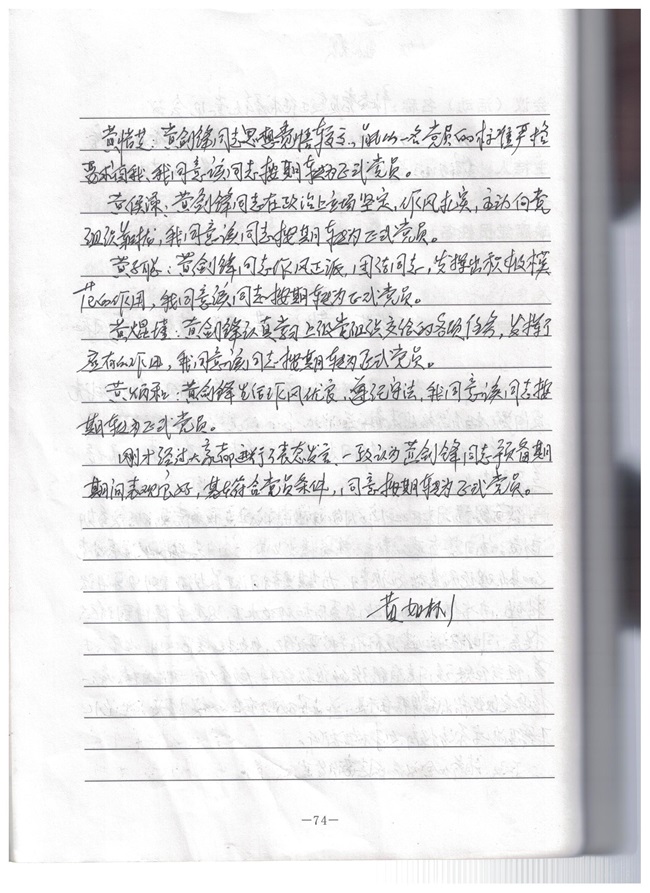 黄怡芳：黄剑锋同志思想觉悟较高，能以一名党员的标准严格
要求自我，我同意该同志按期转为正式党员。
黄俊深：黄剑锋同志在政治上立场坚定，作风扎实，主动向党
组织靠拢，我同意该同志按期转为正式党员。
黄子勝：黄剑锋同志作风正派，团结同志，发挥出积极模
范的作用，我同意该同志按期转为正式党员。
黄焜瑾：黄剑锋认真当上级党组织交给的各项任务，发挥了
应有的作用，我同意该同志按期转为正式党员。
黄炳和：黄剑锋生活作风优良，遵纪守法，我同意该同志按
期转为正式党员。
刚才经过大家都进行了表态发言，一致认为黄剑锋同志预备期
期间表现良好，基本符合党员条件，同意按期转为正式党员。
黄如彬
—74—